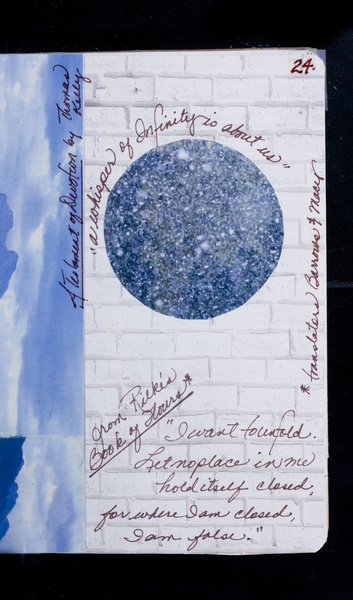 24.
"a whisper of Infinity is about us"
A Testament of Devotion by Thomas
Kelly
* translators Barrows & Macy
from Rilke's
Book of Hours *
"I want to unfold.
Let no place in me
hold itself closed,
for where I am closed,
I am false."